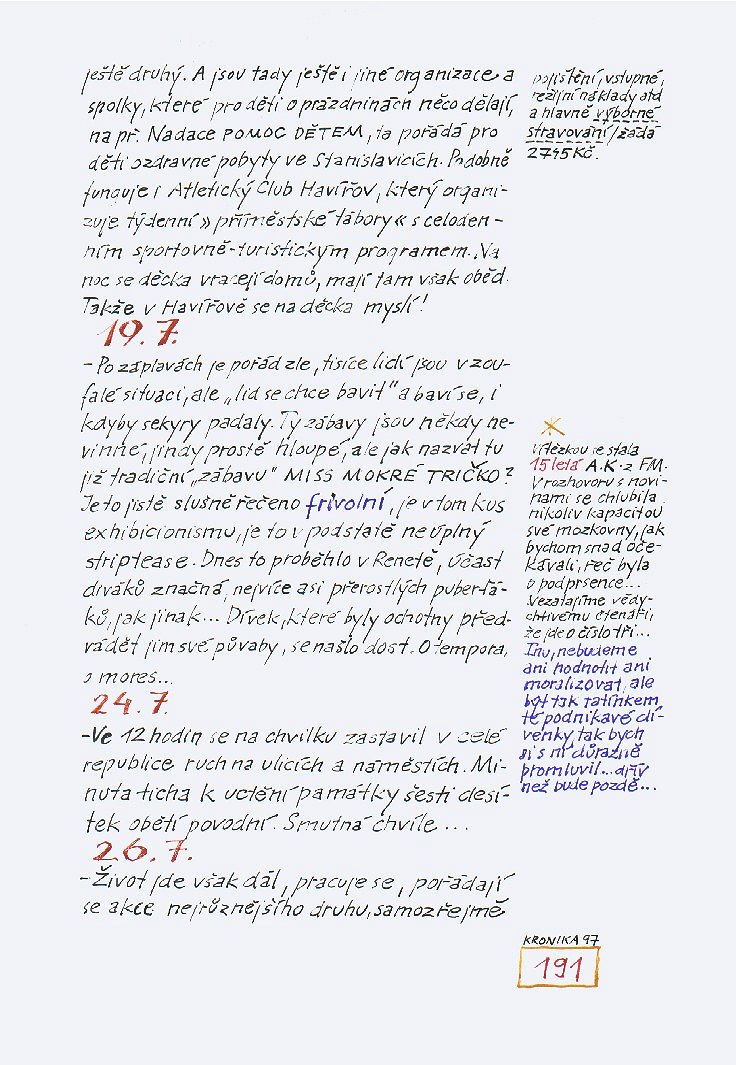 ještě druhý. A jsou tady ještě i jiné organizace a
spolky, které pro děti o prázdninách něco dělají,
na př. Nadace POMOC DĚTEM, ta pořádá pro
děti ozdravné pobyty ve Stanislavicích. Podobně
funguje i Atletický Club Havířov, který organi-
zuje týdenní » příměstské tábory « s celoden-
ním sportovně-turistickým programem. Na
noc se děcka vracejí domů, mají tam však oběd.
Takže v Havířově se na děcka myslí!
19.7.
- Po záplavách je pořád zle, tisíce lidí jsou v zou-
falé situaci, ale „lid se chce bavit" a baví se, i
kdyby sekyry padaly. Ty zábavy jsou někdy ne-
vinné, jindy prostě hloupé, ale jak nazvat tu
již tradiční „zábavu" MISS MOKRÉ TRIČKO?
Je to jistě slušně řečeno frivolní, je v tom kus
exhibicionismu, je to v podstatě neúplný
striptease. Dnes to proběhlo v Renetě, účast
diváků značná, nejvíce asi přerostlých puberťá-
ků, jak jinak... Dívek, které byly ochotny před-
vádět jim své půvaby, se našlo dost. O tempora,
o mores...
24.7.
- Ve 12 hodin se na chvilku zastavil v celé
republice ruch na ulicích a náměstích. Mi-
nuta ticha k uctění památky šesti desí-
tek obětí povodní. Smutná chvíle...
26.7.
- Život jde však dál, pracuje se, pořádají
se akce nejrůznějšího druhu, samozřejmě
pojištění, vstupné,
režijní náklady atd
a hlavně výborné
stravování/žádá
2745Kč.
Vítězkou se stala
15letá A.K. z FM.
V rozhovoru s novi-
nami se chlubila
nikoliv kapacitou
své mozkovny, jak
bychom snad oče-
kávali, řeč byla
o podprsence...
Nezatajíme vědy-
chtivému čtenáři,
že jde o číslo tři...
Inu, nebudeme
ani hodnotit ani
moralizovat, ale
být tak tatínkem
té podnikavé dí-
venky, tak bych
si s ní důrazně
promluvil... dřív
než bude pozdě...
KRONIKA 97
191